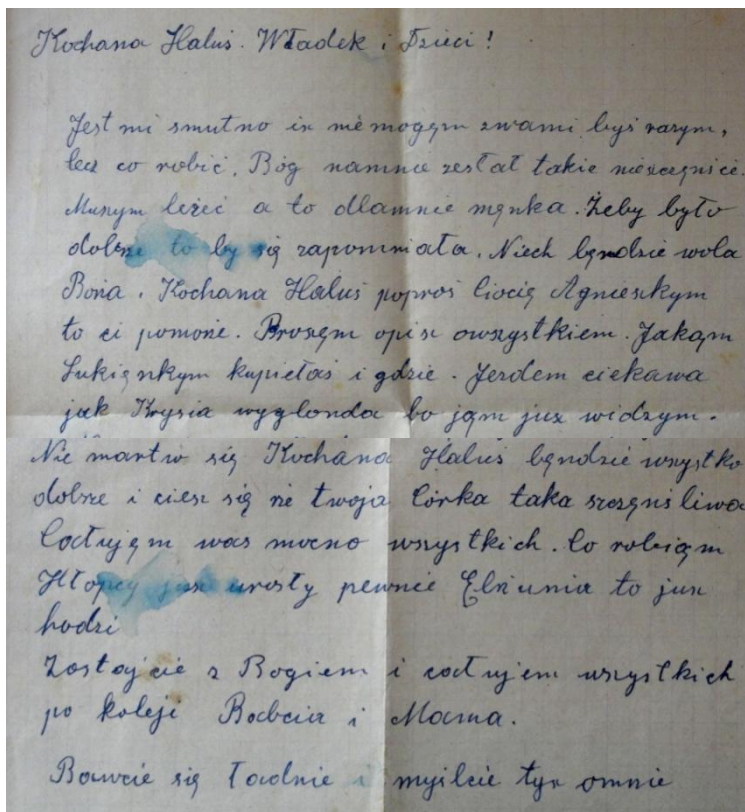 Kochana Haluś. Władek i Dzieci!
Jest mi smutno iż niemogęm zwami byś razym,
lecz co robić. Bóg namnie zesłał takie nieszczęnście.
Muszym leżeć a to dlamnie męnka. Żeby było
dobrze to by się zapomniała. Niech bęndzie wola
Boża. Kochana Haluś poproś Ciocię Agnieszkym
to ci pomoże. Proszęm opisz owszystkiem. Jakąm
Sukięnkym kupiełaś i gdzie. Jezdem ciekawa
jak Krysia wyglonda bo jąm już widzym.
Nie martw się Kochana Haluś bęndzie wszystko
dobrze i ciesz się że twoja Córka taka szczęnśliwa
Całujęm was mocno wszystkich. Co robiąm
Hłopcy już urosły pewnie Elżunia to już
hodzi
Zostajcie z Bogiem i całujem wszystkich
po koleji Babcia i Mama.
Bawcie się ładnie i myślcie tyż omnie